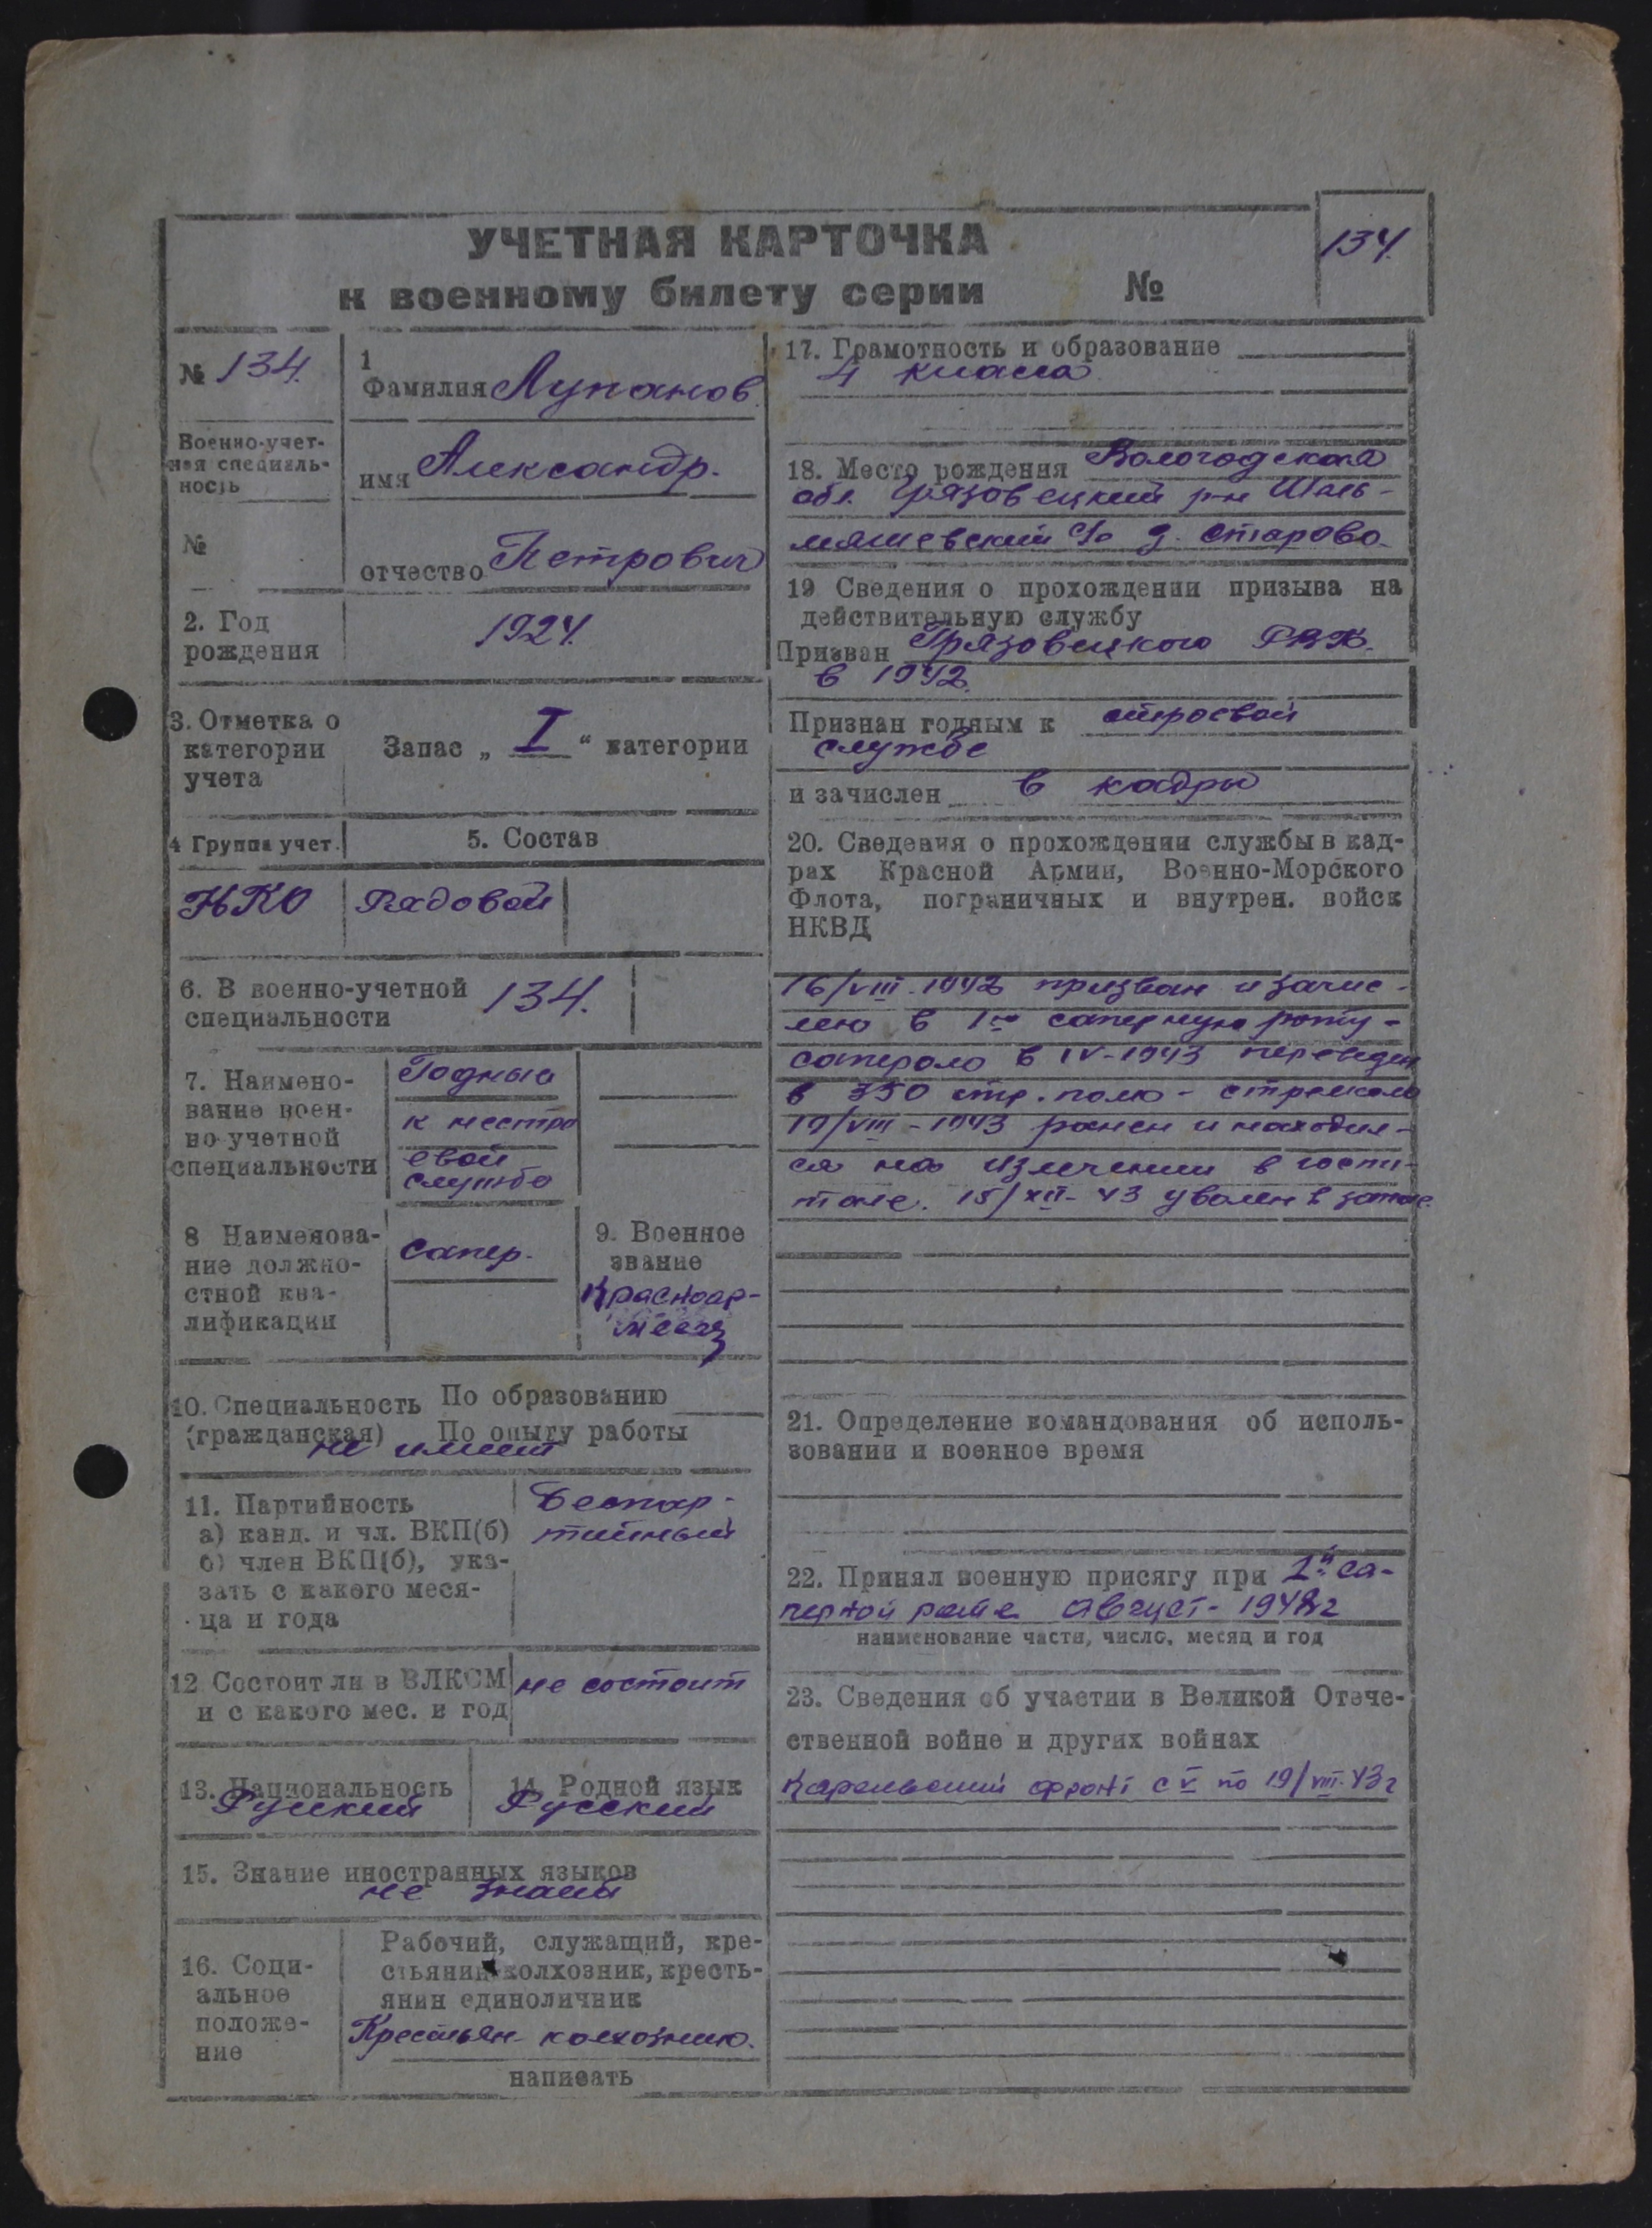 УЧЕТНАЯ КАРТОЧКА
134.
к военному билету серии №
№ 134.
Военно-учет-
ная специаль-
ность
№
1
Фамилия Лупанов
имя Александр.
отчество Петрович
2. Год
рождения
1924.
3. Отметка о
категории
учета
Запас „ I “ категории
4 Группа учет.
5. Состав
НКО
Рядовой
6. В военно-учетной
специальности
134.
7. Наимено-
вание воен-
но-учетной
специальности
Годный
к нестро
евой
службе
8 Наименова-
ние должно-
стной ква-
лификации
Сапер.
9. Военное
звание
Красноар-
меец
10. Специальность По образованию
(гражданская) По опыту работы
не имеет
11. Партийность
а) канд. и чл. ВКП(б)
б) член ВКП(б), ука-
зать с какого меся-
ца и года
Беспар-
тийный
12 Состоит ли в ВЛКСМ
и с какого мес. и год
не состоит
13. Национальность
Русский
14. Родной язык
Русский
15. Знание иностранных языков
не знает
16. Соци-
альное
положе-
ние
Рабочий, служащий, кре-
стьянин колхозник, кресть-
янин единоличник
Крестьян- колхозник.
написать
17. Грамотность и образование
4 класса
18. Место рождения Вологодская
обл. Грязовецкий р-н
с/с д. Старово.
19 Сведения о прохождении призыва на
действительную службу
Призван Грязовецкого РВК.
в 1942.
Признан годным к строевой
службе
и зачислен в кадры
20. Сведения о прохождении службы в кад-
рах Красной Армии, Военно-Морского
Флота, пограничных и внутрен. войск
НКВД
16/VIII-1942 призван и зачис-
лен в 1ю саперную роту-
сапером в IV-1943 переведен
в 350 стр. полк - стрелком
19/VIII-1943 ранен и находил-
ся на излечении в госпи-
тале. 15/XII-43 уволен в запас.
21. Определение командования об исполь-
зовании и военное время
22. Принял военную присягу при 1й са-
перной роте Август - 1942г
наименование части, число, месяц и год
23. Сведения об участии в Великой Отече-
ственной войне и других войнах
Карельский фронт с V по 19/VIII-43г